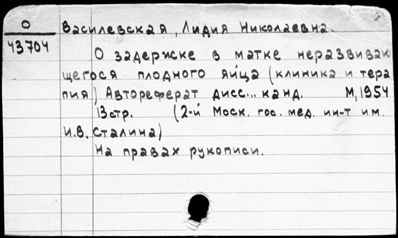 О
43704
Василевская, Лидия Николаевна.
О задержке в матке неразвиваю
щегося плодного яйца (клиника и тера
пия) Автореферат дисс... канд. М, 1954
13стр. (2-й Моск. гос. мед. ин-т им.
И.В. Сталина)
На правах рукописи.